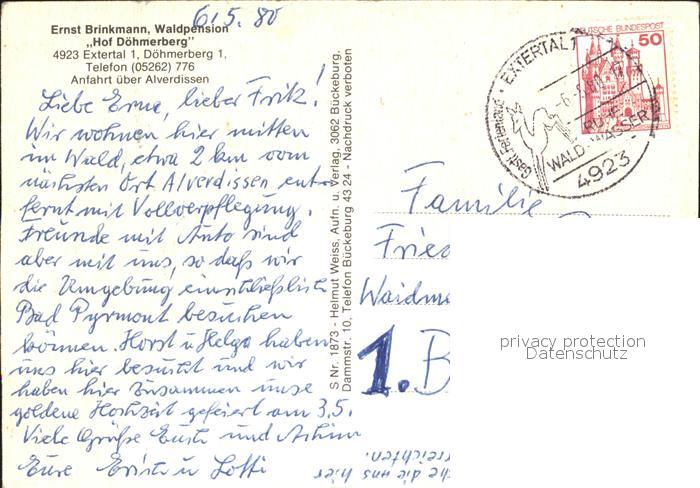 6.5.80
Ernst Brinkmann, Waldpension
„Hof Döhmerberg"
4923 Extertal 1, Döhmerberg 1,
Telefon (05262) 776
Anfahrt über Alverdissen
Liebe Erna, lieber Fritz!
Wir wohnen hier mitten
im Wald, etwa 2 km vom
nächsten Ort Alverdissen ent-
fernt mit Vollverpflegung.
Freunde mit Auto sind
aber mit uns, so daß wir
die Umgebung einschließlich
Bad Pyrmont besuchen
können. Horst u Helga haben
uns hier besucht und wir
haben hier zusammen unse
goldene Hochzeit gefeiert am 3.5.
Viele Grüße Euch und
Eure Erich u Lotti
S Nr. 1873 - Helmut Weiss, Aufn. u. Verlag, 3062 Bückeburg,
Dammstr. 10, Telefon Bückeburg 43 24 - Nachdruck verboten
DEUTSCHE BUNDESPOST
50
EXTERTAL 1
RUHE
WALD-WASSER
4923
Familie
Fried
Waidm
1. B
die uns hier
erreichten.
privacy protection
Datenschutz